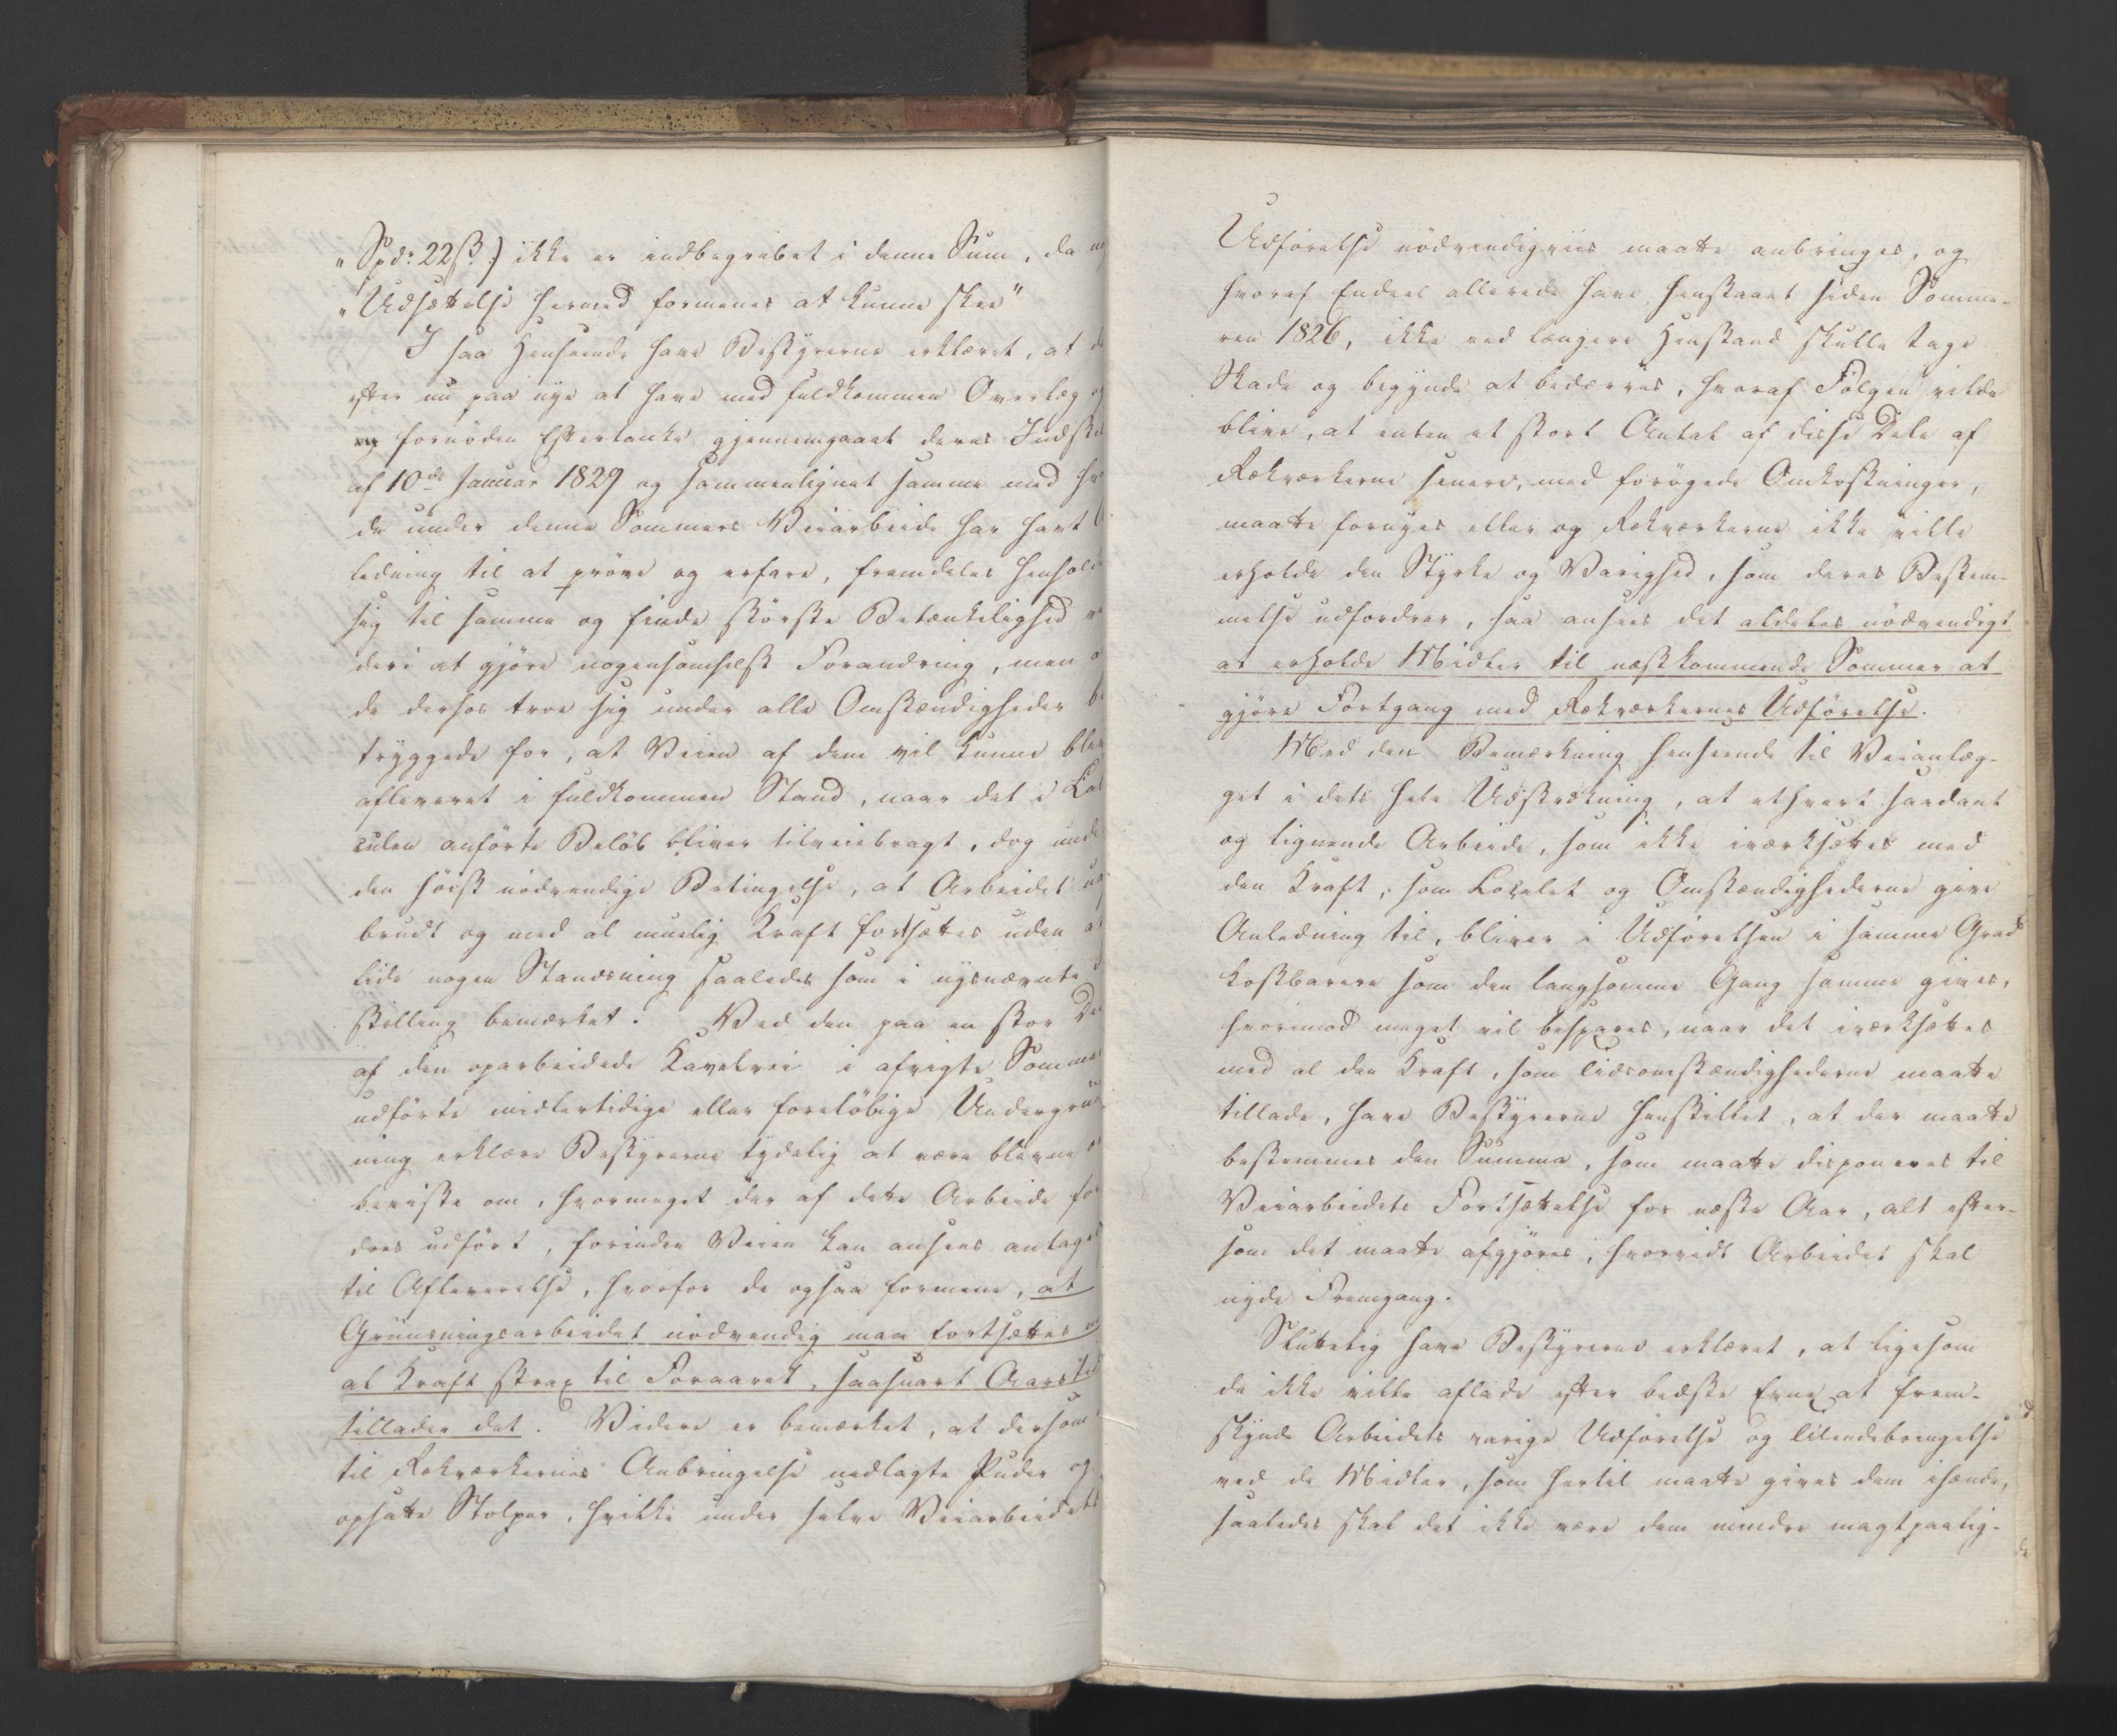 „Spdr. 22 ß.) ikke er indbegrebet i denne Sum, da
„Udsættelse hermed formenes at kunne skee"
I saa Henseende have Bestyrerne erklæret, at de
efter nu paa nye at have med fuldkommen Overlæg og
fornøden Eftertanke gjennemgaaet deres Indstil
af 10de Januar 1829 og sammenlignet samme med hv
de under denne Sommers Veiarbeide har havt
ledning til at prøve og erfare, fremdeles henholde
sig til samme og finde største Betænkelighed
deri at gjøre nogensomhelst Forandring, men
de derhos troe sig under alle Omstændigheder be
tryggede for, at Veien af dem vil kunne blive
afleveret i fuldkommen Stand, naar det i Cal
culen anførte Beløb bliver tilveiebragt, dog unde
den høist nødvendige Betingelse, at Arbeidet
brudt og med al muelig Kraft fortsættes uden at
lide nogen Standsning saaledes som i nysnævnte
stilling bemærket. Ved den paa en stor Deel
af den oparbeidede Kavelvei i afvigte Sommer
udførte midlertidige eller foreløbige Undergruus
ning erklære Bestyrerne tydelig at være blevne
beviste om, hvormeget der af dette Arbeide for
dres udført, forinden Veien kan ansees antagelig
til Afleverelse, hvorfor de ogsaa formene, at
Gruusningsarbeidet nødvendig maa fortsættes
al Kraft strax til Foraaret, saasnart Aarstid
tillader det. Videre er bemærket, at dersom
til Rækværkernes Anbringelse nedlagte Puder og
opsatte Stolper, hvilke under selve Veiarbeidets
Udførelse nødvendigviis maatte anbringes, og
hvoraf Endeel allerede have henstaaet siden Somme-
ren 1826, ikke ved længere Henstand skulle tage
Skade og begynde at bedærves, hvoraf Følgen vilde
blive, at enten et stort Antal af disse Dele af
Rækværkerne senere, med forøgede Omkostninger,
maatte fornyes eller og Rækværkerne ikke ville
erholde den Styrke og Varighed, som deres Bestem-
melse udfordrer, saa ansees det aldeles nødvendigt
at erholde Midler til næstkommende Sommer at
gjøre Fortgang med Rækværkernes Udførelse.
Med den Bemærkning henseende til Veianlæg-
get i dets hele Udstrækning, at ethvert saadant
og lignende Arbeide, som ikke iværksættes med
den Kraft, som Localet og Omstændighederne give
Anledning til, bliver i Udførelsen i samme Grad
kostbarere som den langsomme Gang samme gives,
hvorimod meget vil bespares, naar det iværksættes
med al den Kraft, som Tidsomstændighederne maatte
tillade, have Bestyrerne henstillet, at der maatte
bestemmes den Summa, som maatte disponeres til
Veiarbeidets Fortsættelse for næste Aar, alt efter-
som det maatte afgjøres, hvorvidt Arbeidet skal
nyde Fremgang.
Sluttelig have Bestyrerne erklæret, at ligesom
de ikke ville aflade efter bedste Evne at frem-
skynde Arbeidets varige Udførelse og Tilendebringelse
ved de Midler, som hertil maatte gives dem ihænde,
saaledes skal det ikke være dem mindre magtpaalig-